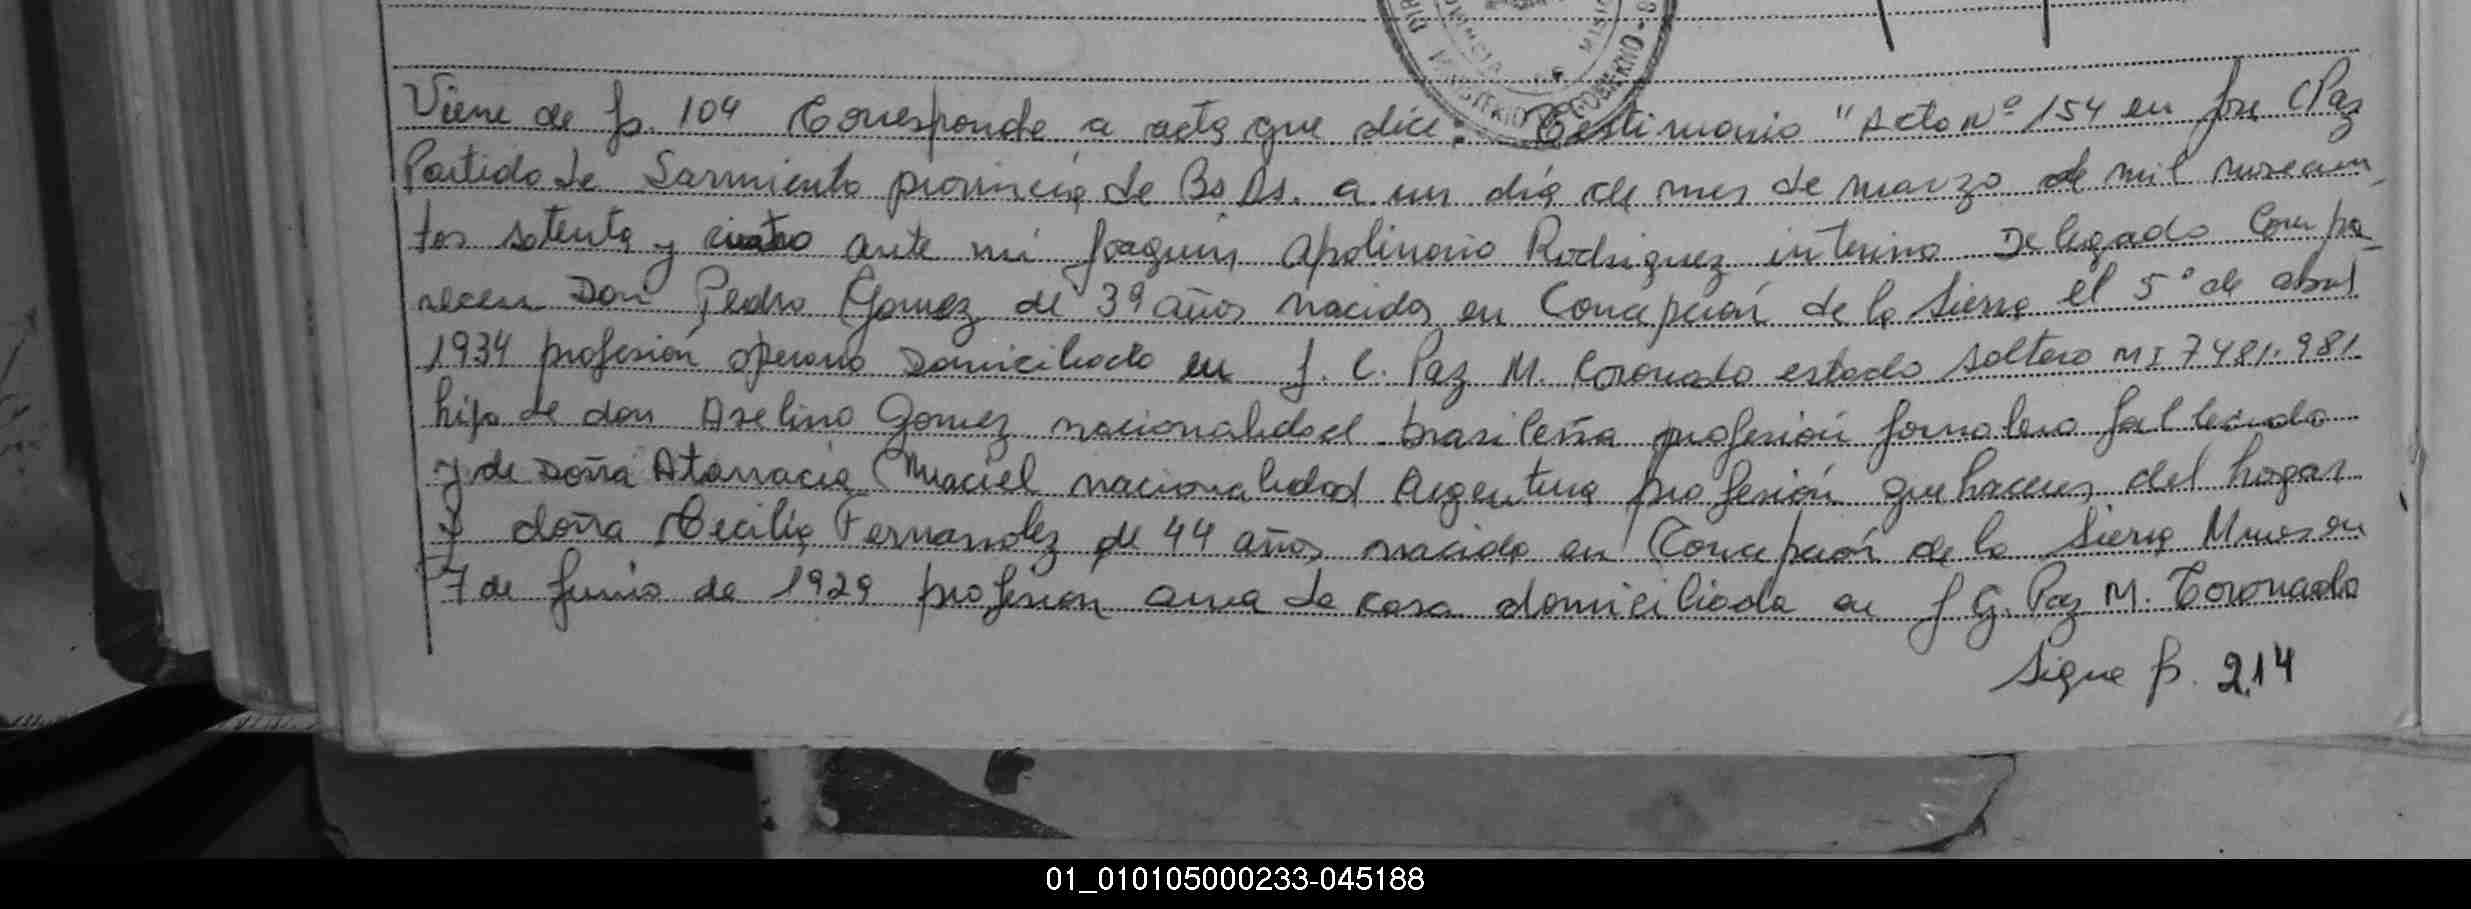 Viene de fs. 104 Corresponde a acta que dice: Testimonio "Acta Nº 154 en Jose C Paz
Partido de Sarmiento provincia de Bs As. a un dia de mes de marzo de mil novecien
tos setenta y cuatro ante mi Joaquin Apolinario Rodriguez interino Delegado Compa
recen Don Pedro Gomez de 39 años nacido en Concepción de la Sierra el 5° de abril
1934 profesión operario Domiciliado en J. C. Paz M. Coronado estado soltero MI 7481.981
hijo de don Avelino Gomez nacionalidad brasileña profesión jornalero fallecido
y de Doña Atanacia Maciel nacionalidad Argentina profesión quehaceres del hogar
y doña Cecilia Fernandez de 44 años nacida en Concepción de la Sierra Mnes en
7 de Junio de 1929 profesión ama de casa domiciliada en J C. Paz M. Coronado
Sigue fs. 214
MINISTERIO DE GOBIERNO
01_010105000233-045188